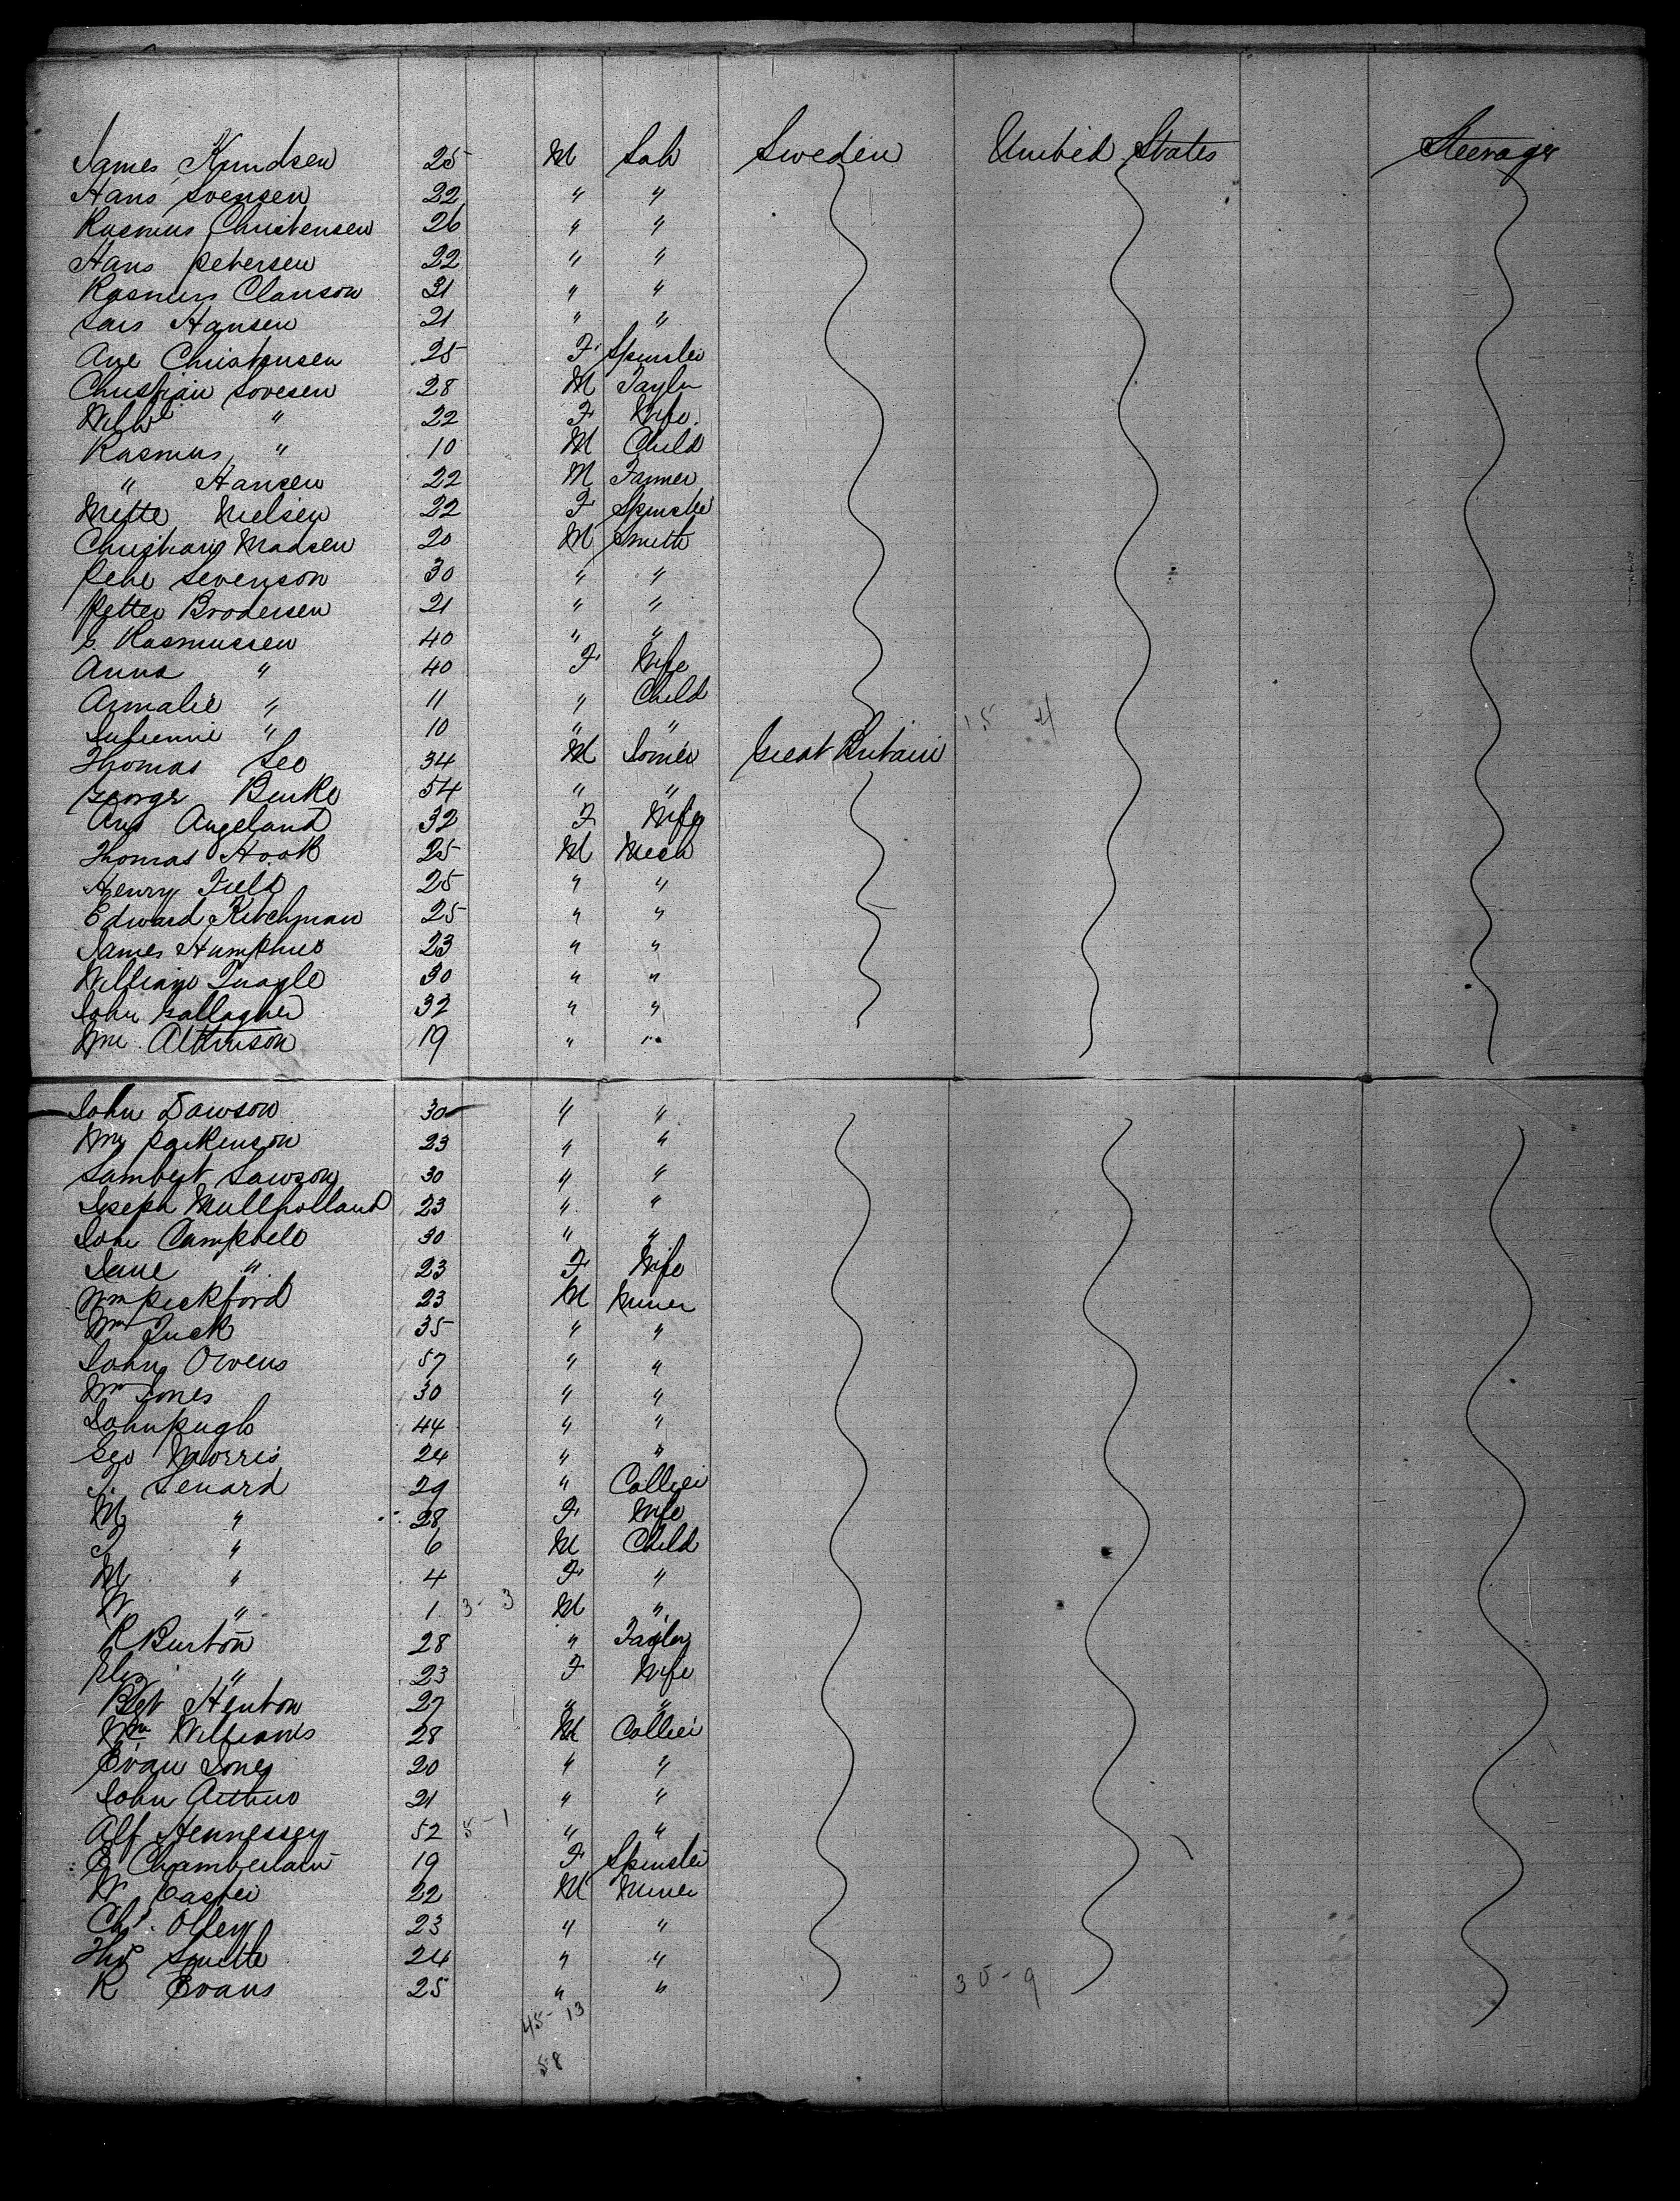 James Knudsen 25 M Lab Sweden United States Steerage
Hans Svensen 22 " "
Rasmus Christensen 26 " "
Hans Petersen 22 " "
Rasmus Clauson 31 " "
Lars Hansen 21 " "
Ane Christensen 25 F Spinster
Christian Lovesen 28 M Taylor
" 22 F Wife
Rasmus " 10 M Child
" Hansen 22 M Farmer
Mette Nielsen 22 F Spinster
Christian Madsen 20 M Smith
Pehe Sevenson 30 " "
Petter Brodersen 21 " "
S. Rasmussen 40 " "
Anna " 40 F Wife
Armalie " 11 " Child
" 10 " " 15 4
Thomas Leo 34 M Great Britain
George Burke 54 " "
Ann Angeland 32 F Wife
Thomas Hook 25 M Mech
Henry Field 25 " "
Edward Kitchman 25 " "
James Humphries 23 " "
William Quayle 30 " "
John Gallagher 32 " "
Wm Atkinson 19 " "
John Dawson 30 " "
Wm Parkinson 23 " "
Lambert Lawson 30 " "
Joseph Mullholland 23 " "
John Campbell 30 " "
Jane " 23 F Wife
Wm Peckford 23 M Miner
Wm Tuck 35 " "
John Owens 57 " "
Wm Jones 30 " "
John Pugh 44 " "
Geo Morris 24 " "
T. Lenard 29 " Collier
M " 28 F Wife
T " 6 M Child
M " 4 F "
W " 1 3-3 M "
R Burton 28 " Taylor
Eliz " 23 F Wife
Bet Henton 27 " "
Wm Williams 28 M Collier
Evan Jones 20 " "
John Arthur 21 " "
Alf Hennessey 52 5-1 " "
E Chamberlain 19 F Spinster
W Castei 22 M Miner
Chs. Olley 23 " "
Thos Smith 24 " "
R Evans 25 " " 30-9
45-13
58